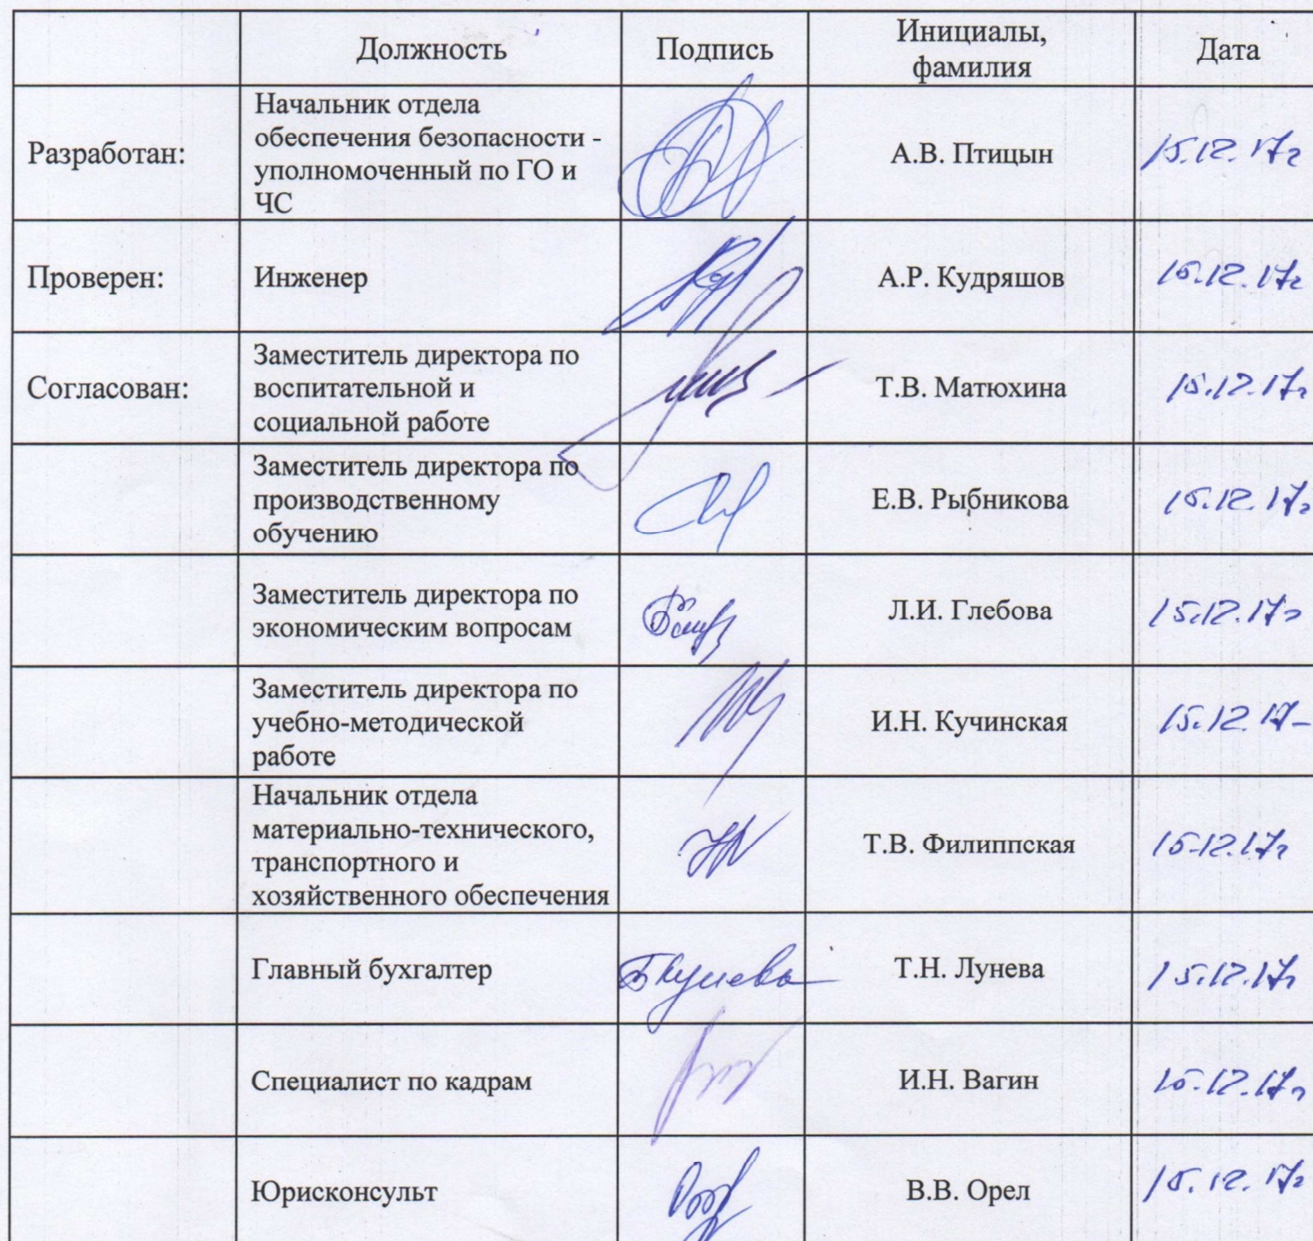 Должность Подпись Инициалы, фамилия Дата
Разработан:
Начальник отдела
обеспечения безопасности -
уполномоченный по ГО и
ЧС
А.В. Птицын
15.12.17г
Проверен:
Инженер
А.Р. Кудряшов
15.12.17г
Согласован:
Заместитель директора по
воспитательной и
социальной работе
Т.В. Матюхина
15.12.17г
Заместитель директора по
производственному
обучению
Е.В. Рыбникова
15.12.17г
Заместитель директора по
экономическим вопросам
Л.И. Глебова
15.12.17г
Заместитель директора по
учебно-методической
работе
И.Н. Кучинская
15.12.17
Начальник отдела
материально-технического,
транспортного и
хозяйственного обеспечения
Т.В. Филиппская
15.12.17г
Главный бухгалтер
Т.Н. Лунева
15.12.17г
Специалист по кадрам
И.Н. Вагин
15.12.17г
Юрисконсульт
В.В. Орел
15.12.17г